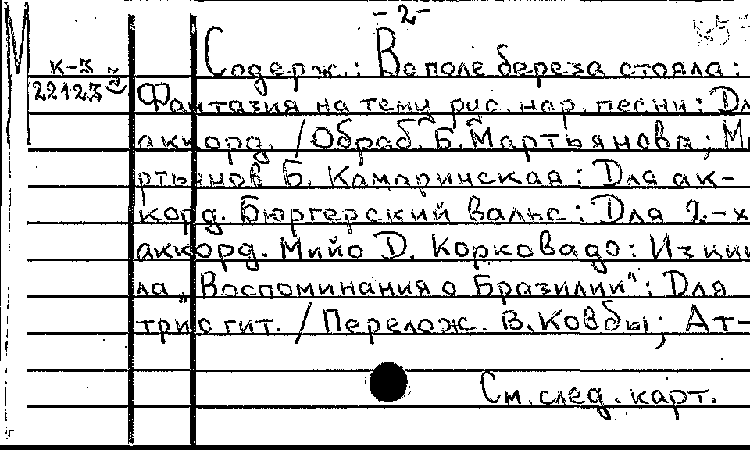 - 2 -
Содерж.: Во поле береза стояла:
К-3
22123
Фантазия на тему рус. нар. песни: Дл
аккорд. / Обраб. Б. Мартьянова; Ма
ртьянов Б. Камаринская: Для ак-
корд. Бюргерский вальс: Для 2-х
аккорд. Мийо Д. Корковадо: Из цик
ла „Воспоминания о Бразилии": Для
трио гит. / Перелож. В. Ковбы; Ат-
См. след. карт.